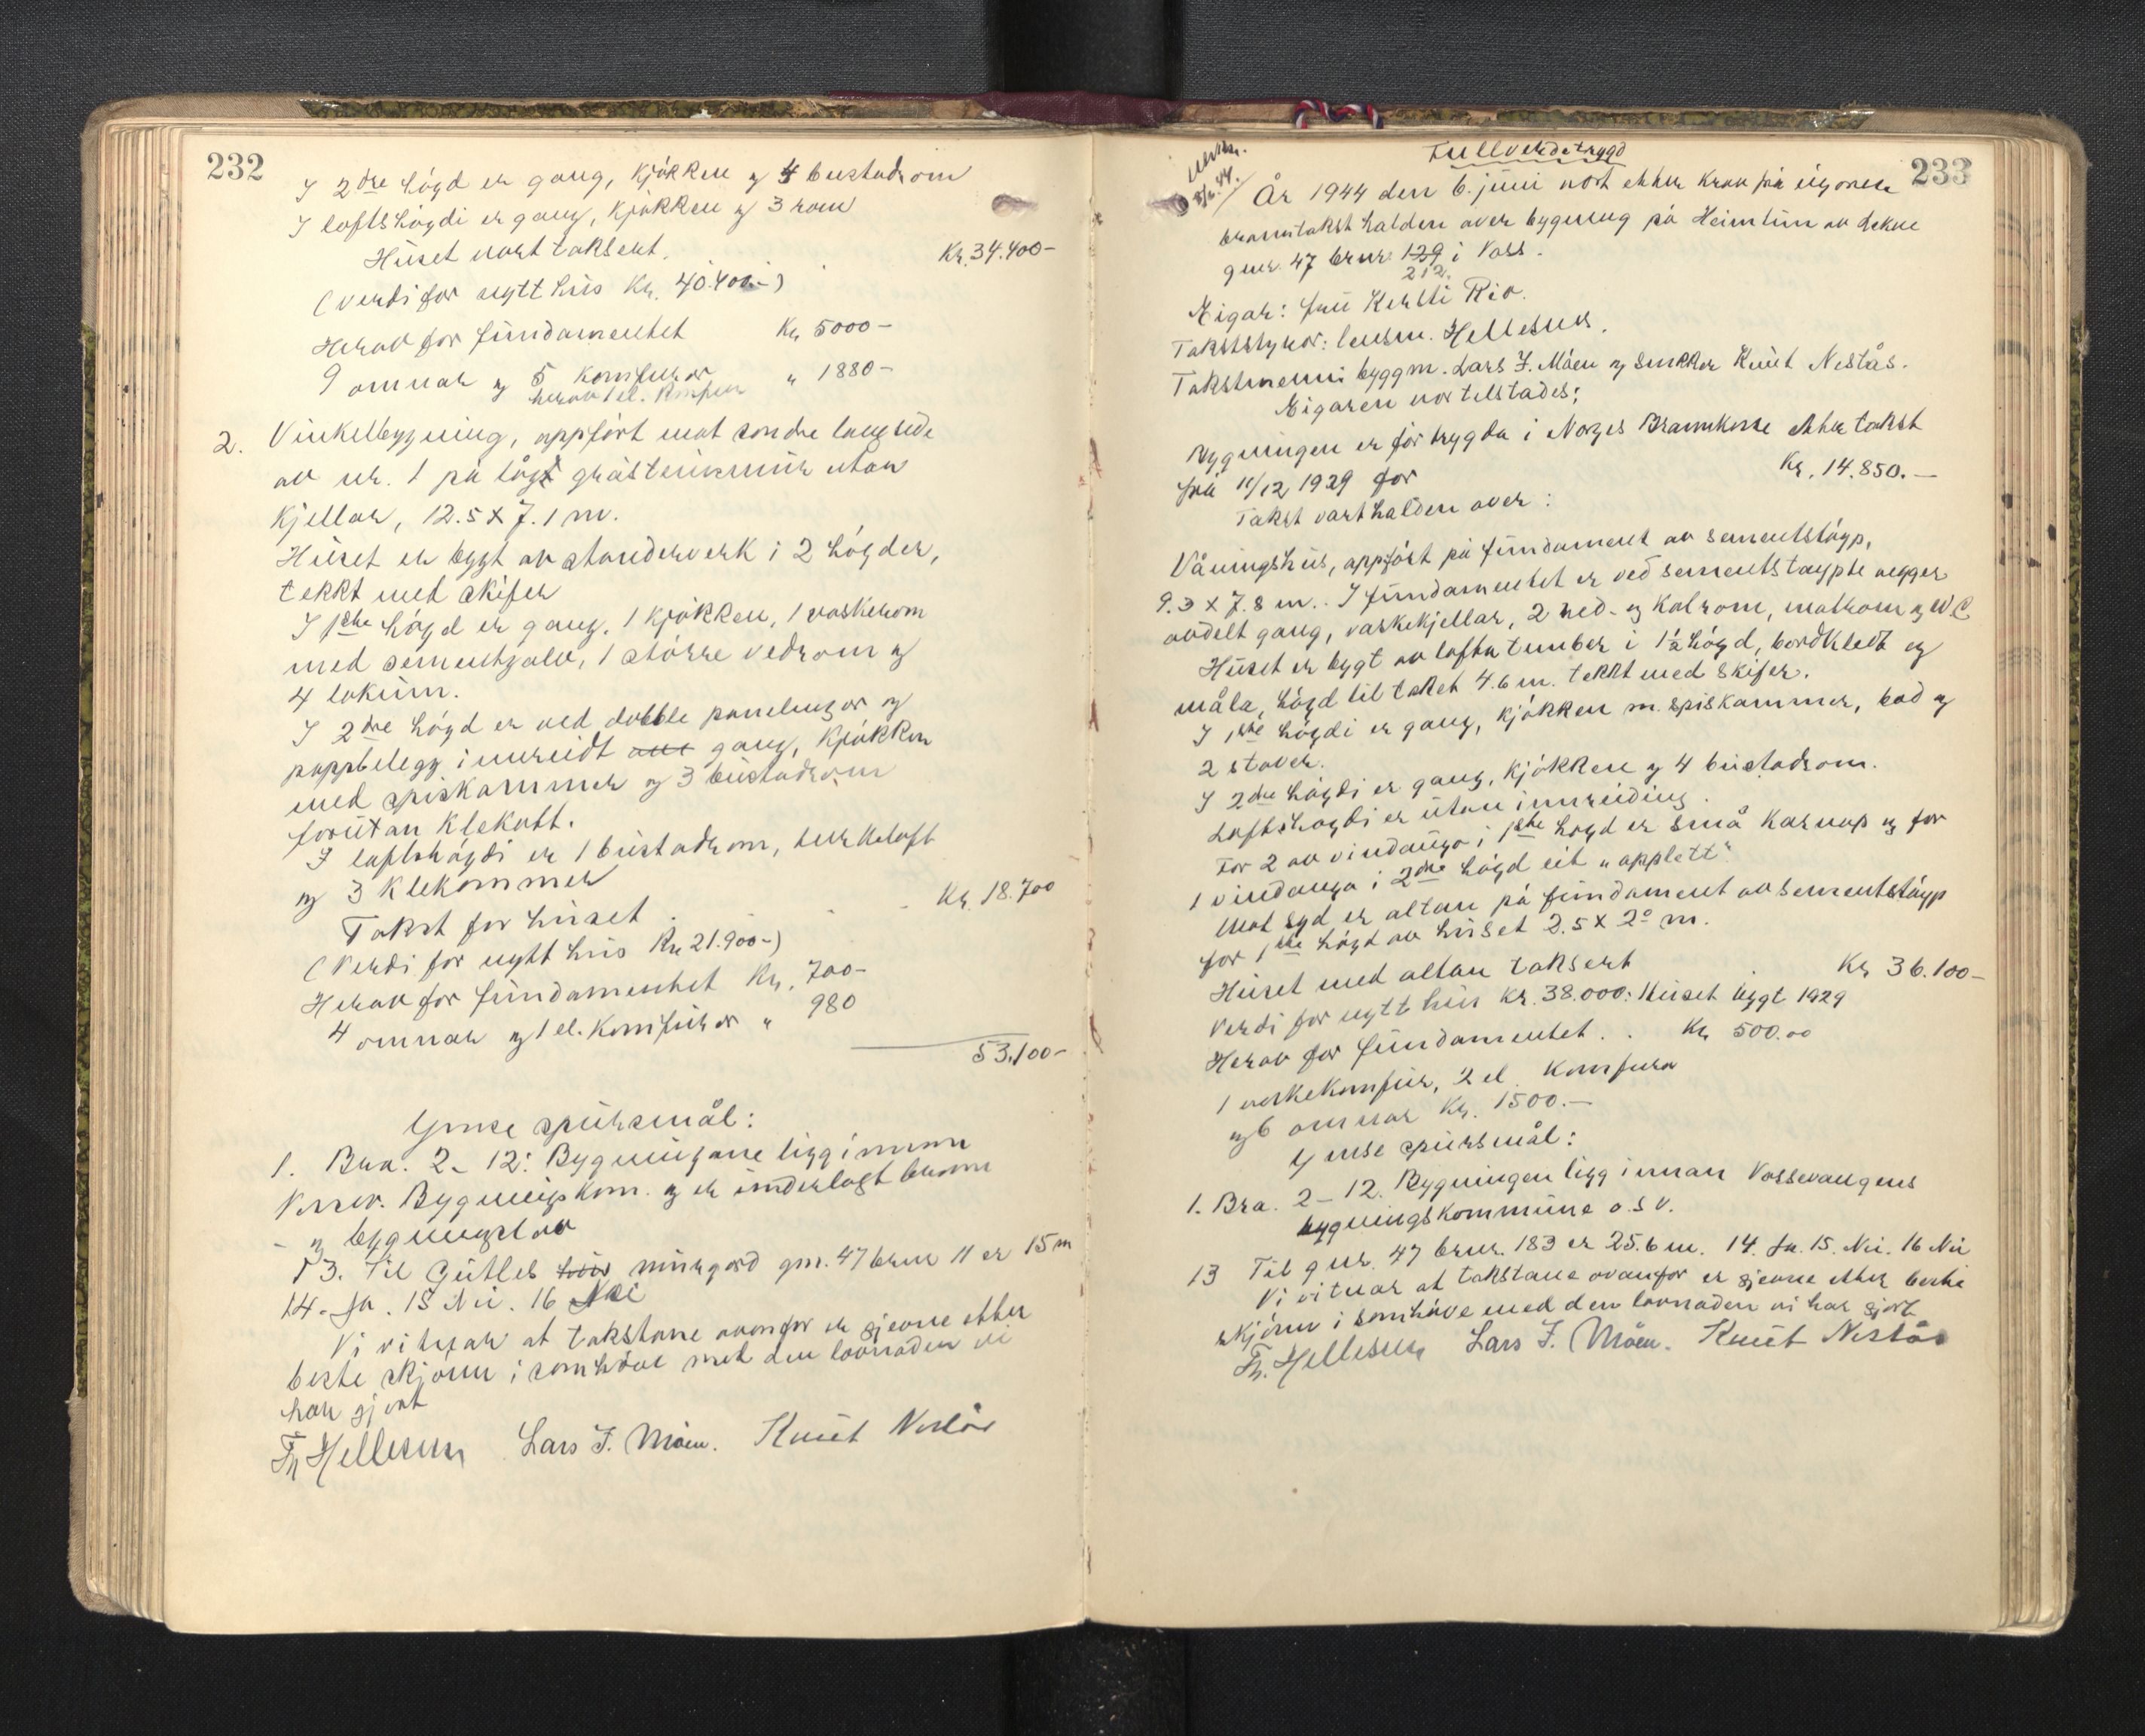 232
I 2dre högd er gang, kjökken og 4 bustadrom
I loftshögdi er gang, kjökken og 3 rom
Huset vart taksert. Kr. 34.400-
(Verdi for nytt hus Kr. 40.400.-)
Herav for fundamentet Kr. 5000-
9 omnar og 5 komfurar " 1880-
herav 1 el. komfur
2. Vinkelbygning, oppfört mot söndre langside
av nr. 1 på lågt gråsteinsmur utan
kjellar, 12.5 x 7.1 m.
Huset er bygt av standerverk i 2 högder,
tekkt med skifer
I 1ste högd er gang, 1 kjökken, 1 vaskerom
med sementgolv, 1 större vedrom og
4 lokum.
I 2dre högd er ved dobble panelingar og
pappbelegg innreidt gang, kjökken
med spiskammer og 3 bustadrom
forutan klekott.
I loftshögdi er 1 bustadrom, turkeloft
og 3 klekommer
Takst for huset Kr. 18.700
(Verdi for nytt hus Kr. 21.900-)
Herav for fundamentet Kr. 700-
4 omnar og 1 el. komfurar " 980
53.100-
Ymse spursmål:
1. Bra. 2-12: Bygningane ligg innan
Vossev. Bygningskom. og er underlagt brann
- og bygningslov
13. Til Gutleb murgard gnr. 47 brnr 11 er 15 m
14. Ja. 15 Nei. 16 Nei
Vi vitnar at takstane ovanfor er gjevne etter
beste skjönn i samhöve med den lovnaden vi
har gjort
Th Hellesnes Lars J. Måen. Knut Nestås
Fullverdetrygd
233
8/6.44.
År 1944 den 6. juni vart etter krav frå eigaren
branntakst halden over bygning på Heimtun av dekne
gnr. 47 brnr. 139 i Voss.
212.
Eigar: fru Kersti Rio.
Takststyrar: lensm. Hellesnes.
Takstmenn: byggm. Lars J. Måen og snikker Knut Nestås.
Eigaren var tilstades;
Bygningen er för trygda i Norges Brannkasse etter takst
frå 11/12 1929 for Kr. 14.850.—
Takst vart halden over:
Våningshus, oppfört på fundament av sementstöyp,
9.3 x 7.8 m.. I fundamentet er ved sementstöypte vegger
avdelt gang, vaskekjellar, 2 ved- og kolrom, matrom og W C
Huset er bygt av lafta tumber i 1½ högd, bordkledt og
måla, högd til taket 4.6 m. tekkt med skifer.
I 1ste högdi er gang, kjökken m. spiskammer, bad og
2 stover.
I 2dre högdi er gang, kjökken og 4 bustadrom.
Loftshögdi er utan innreiding.
For 2 av vindauga i 1ste högd er små karnap og for
1 vindauga i 2dre högd eit "opplett".
Mot syd er altan på fundament av sementstöyp
for 1ste högd av huset 2.5 x 2.0 m.
Huset med altan taksert Kr. 36.100-
Verdi for nytt hus kr. 38.000: Huset bygt 1929
Herav for fundamentet . . Kr. 500.00
1 vaskekomfur, 2 el. komfura
og 6 omnar Kr. 1500.—
Ymse spursmål:
1. Bra. 2-12. Bygningen ligg innan Vossevangens
bygningskommune o.s.v.
13 Til gnr. 47 brnr. 183 er 25.6 m. 14. Ja. 15. Nei. 16 Nei
Vi vitnar at takstane ovanfor er gjevne etter beste
skjönn i samhöve med den lovnaden vi har gjort
Th. Hellesnes Lars J. Måen. Knut Nestås